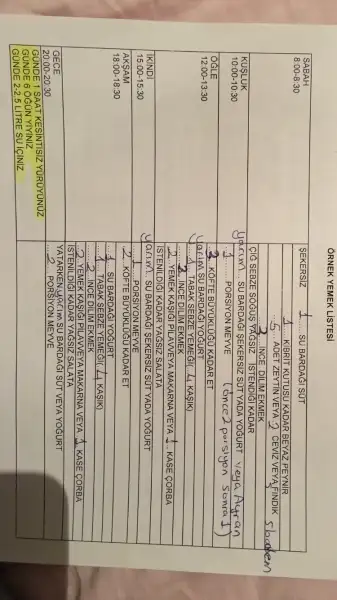 ÖRNEK YEMEK LİSTESİ
SABAH
8:00-8:30
ŞEKERSİZ 1 SU BARDAĞI SÜT
1 KİBRİT KUTUSU KADAR BEYAZ PEYNİR
5 ADET ZEYTİN VEYA 2 CEVİZ VEYA FINDIK 5 badem
2 İNCE DİLİM EKMEK
ÇİĞ SEBZE SÖĞÜŞ YAĞSIZ İSTENDİĞİ KADAR
KUŞLUK
10:00-10:30
yarım SU BARDAĞI ŞEKERSİZ SÜT YADA YOĞURT veya Ayran
1 PORSİYON MEYVE (önce 2 porsiyon sonra 1)
ÖĞLE
12:00-13:30
3 KÖFTE BÜYÜKLÜĞÜ KADAR ET
yarım SU BARDAĞI YOĞURT
1 TABAK SEBZE YEMEĞİ( 4 KAŞIK)
2 İNCE DİLİM EKMEK
2 YEMEK KAŞIĞI PİLAVVEYA MAKARNA VEYA 1 KASE ÇORBA
İSTENİLDİĞİ KADAR YAĞSIZ SALATA
İKİNDİ
15:00-15:30
yarım SU BARDAĞI ŞEKERSİZ SÜT YADA YOĞURT
1 PORSİYON MEYVE
AKŞAM
18:00-18:30
2 KÖFTE BÜYÜKLÜĞÜ KADAR ET
1 SU BARDAĞI YOĞURT
1 TABAK SEBZE YEMEĞİ( 4 KAŞIK)
2 İNCE DİLİM EKMEK
2 YEMEK KAŞIĞI PİLAVVEYA MAKARNA VEYA 1 KASE ÇORBA
İSTENİLDİĞİ KADAR YAĞSIZ SALATA
GECE
20:00-20:30
YATARKEN yarım SU BARDAĞI SÜT VEYA YOĞURT
2 PORSİYON MEYVE
GÜNDE 1 SAAT KESİNTİSİZ YÜRÜYÜNÜZ
GÜNDE 6 ÖĞÜN YİYİNİZ
GÜNDE 2-2,5 LİTRE SU İÇİNİZ